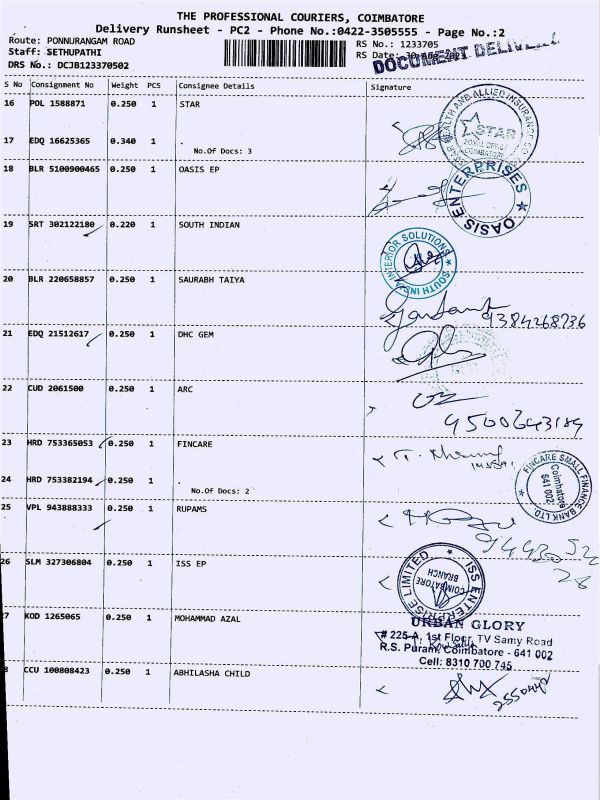 THE PROFESSIONAL COURIERS, COIMBATORE
Delivery Runsheet - PC2 - Phone No.:0422-3505555 - Page No.:2
Route: PONNURANGAM ROAD
RS No.: 1233705
Staff: SETHUPATHI
RS Date: 30
DOCUMENT DELIVE
DRS No.: DCJB123370502
S No Consignment No Weight PCS Consignee Details Signature
16 POL 1588871 0.250 1 STAR
STAR
17 EDQ 16625365 0.340 1
No.Of Docs: 3
18 BLR 5100900465 0.250 1 OASIS EP
OASIS ENTERPRISES
19 SRT 302122180 0.220 1 SOUTH INDIAN
SOUTH INDIA INTERIOR SOLUTIONS
20 BLR 220658857 0.250 1 SAURABH TAIYA
9384268736
21 EDQ 21512617 0.250 1 DHC GEM
22 CUD 2061500 0.250 1 ARC
9500643189
23 HRD 753365053 0.250 1 FINCARE
24 HRD 753382194 0.250 1
No.Of Docs: 2
FINCARE SMALL FINANCE BANK LTD.
Coimbatore
641 002
25 VPL 943888333 0.250 1 RUPAMS
26 SLM 327306804 0.250 1 ISS EP
ISS ENTERPRISE LIMITED
COIMBATORE
BRANCH
7 KOD 1265065 0.250 1 MOHAMMAD AZAL
URBAN GLORY
# 225-A, 1st Floor, TV Samy Road
R.S. Puram, Coimbatore - 641 002
Cell: 8310 700 745
8 CCU 100808423 0.250 1 ABHILASHA CHILD